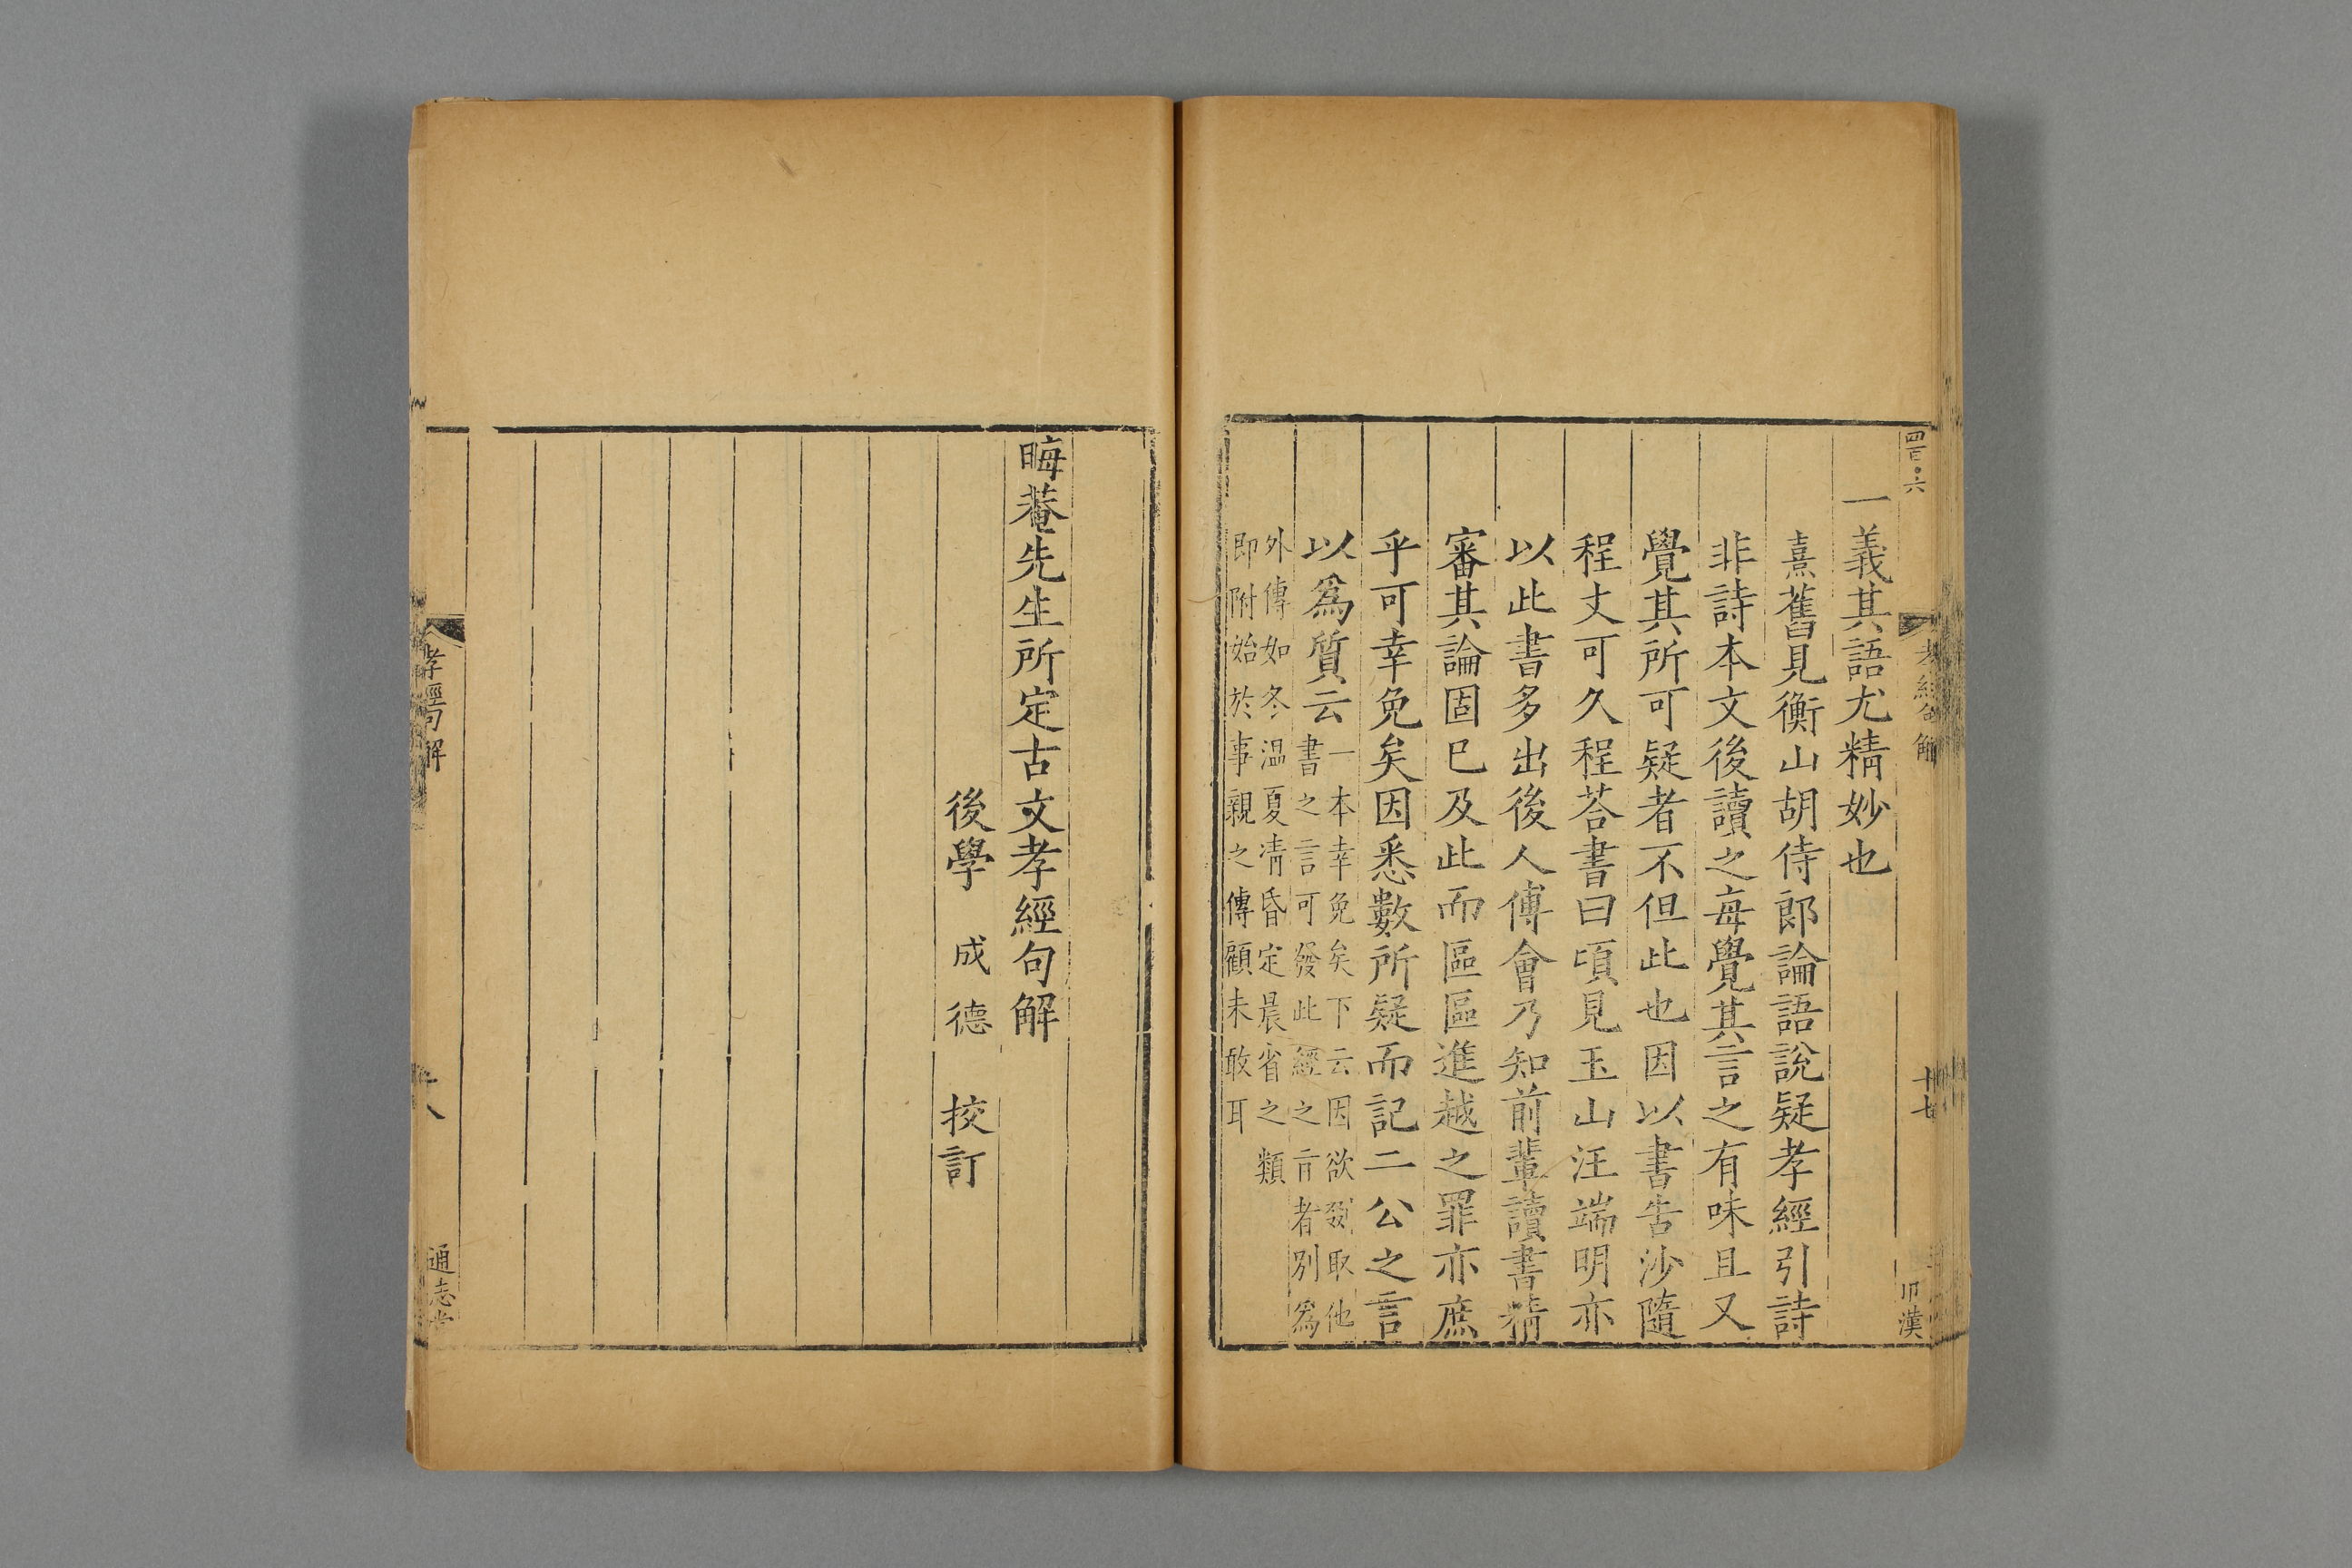 四百〇六
孝經句解
十七
卬漢
一義其語尤精妙也
熹舊見衡山胡侍郎論語說疑孝經引詩
非詩本文後讀之每覺其言之有味且又
覺其所可疑者不但此也因以書告沙隨
程丈可久程荅書曰頃見玉山汪端明亦
以此書多出後人傅會乃知前輩讀書精
審其論固已及此而區區進越之罪亦庶
乎可幸免矣因悉數所疑而記二公之言
以爲質云
一本幸免矣下云因欲發取他
書之言可發此經之㫖者別爲
外傳如冬温夏凊昏定晨省之類
即附始於事親之傳顧未敢耳
晦菴先生所定古文孝經句解
後學 成德 挍訂
孝經句解
十八
通志堂